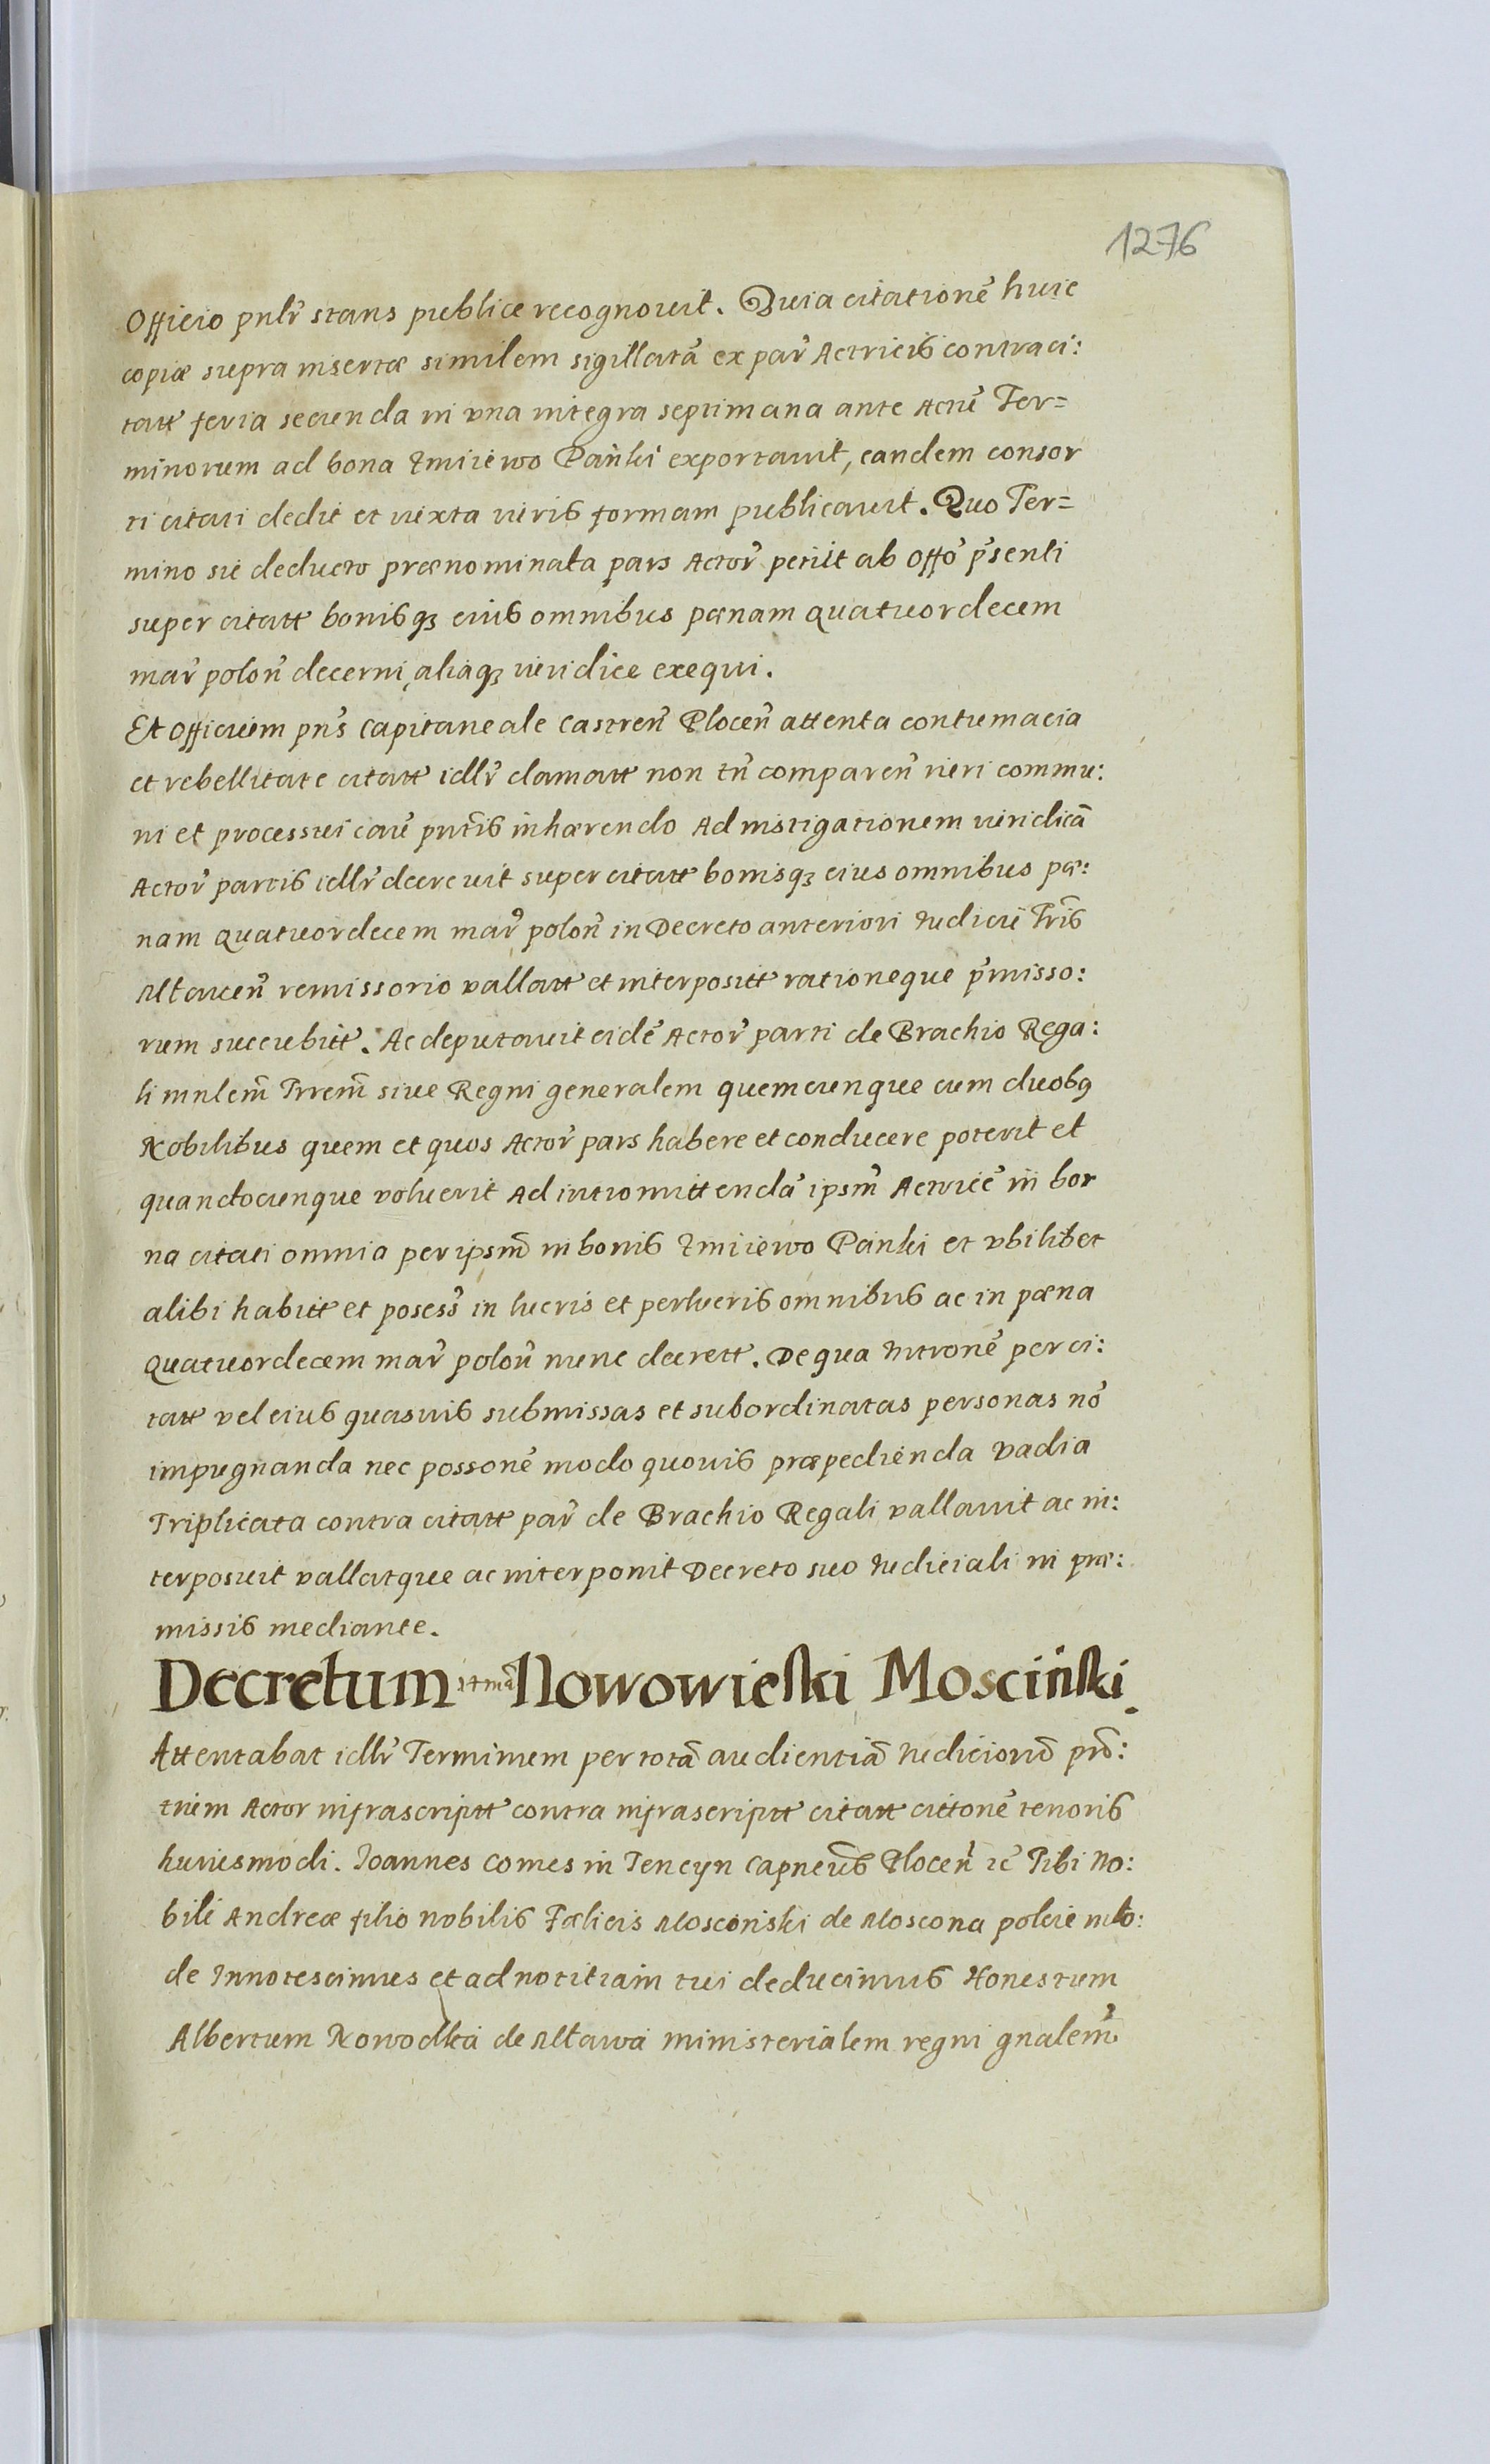 1276
Officio pnlr̃ stans publice recognouit. Quia citationẽ huic
copiæ supra insertæ similem sigillatã ex par̃ Actricis contra ci:
tatt feria secunda in vna integra septimana ante Actũ Ter=
minorum ad bona Zmiiewo Pańki exportauit, eandem consor
ti citati dedit et iuxta iuris formam publicauit. Quo Ter=
mino sic deducto prænominata pars Actor̃ petiit ab Offõ p̃senti
super citatt bonisqȝ eius omnibus pænam quatuordecem
mar̃ polon̄ decerni, aliaqȝ iuridice exequi.
Et Officium pn̄s Capitaneale Castren̄ Plocen̄ attenta contumacia
et rebellitate citatt idlr̃ clamatt non tñ comparen̄ iuri commu:
ni et processui cauẽ pñtis inhærendo Ad instigationem iuridicã
Actor̃ partis idlr̃ decreuit super citatt bonisqȝ eius omnibus pæ:
nam quatuordecem mar̃ polon̄ in Decreto anteriori Iudicii Tr̃is
Mlauen̄ remissorio vallatt et interpositt rationeque p̃misso:
rum succubitt. Ac deputauit eidẽ Actor̃ parti de Brachio Rega:
li mnlem̃ Trrem̃ siue Regni generalem quemcunque cum duobꝫ
Nobilibus quem et quos Actor̃ pars habere et conducere poterit et
quandocunque voluerit Ad intromittendã ipsm̃ Actricẽ in bo
na citati omnia per ipsm̃ in bonis Zmiiewo Pańki et vbilibet
alibi habitt et posess̃ in lucris et perlucris omnibus ac in pæna
quatuordecem mar̃ polon̄ nunc decrett. De qua Intronẽ per ci:
tatt vel eius quasuis submissas et subordinatas personas nõ
impugnanda nec possonẽ modo quouis præpedienda vadia
Triplicata contra citatt par̃ de Brachio Regali vallauit ac in:
terposuit vallatque ac interponit Decreto suo Iudiciali in præ:
missis mediante.
Decretum Nowowieski Mosciński
Attentabat idlr̃ Terminum per totã audientiã Iudiciorũ prõ:
tuem Actor infrascriptt contra infrascriptt citatt cittonẽ tenoris
huiusmodi. Joannes Comes in Tencyn Capneus̃ Plocen̄ zc̃ Tibi No:
bili Andreæ filio nobilis Fælicis Moscoński de Moscona polcie mlo:
de Innotescimus et ad notitiam tui deducimus Honestum
Albertum Nowodka de Mlawa ministerialem regni gnalem̃